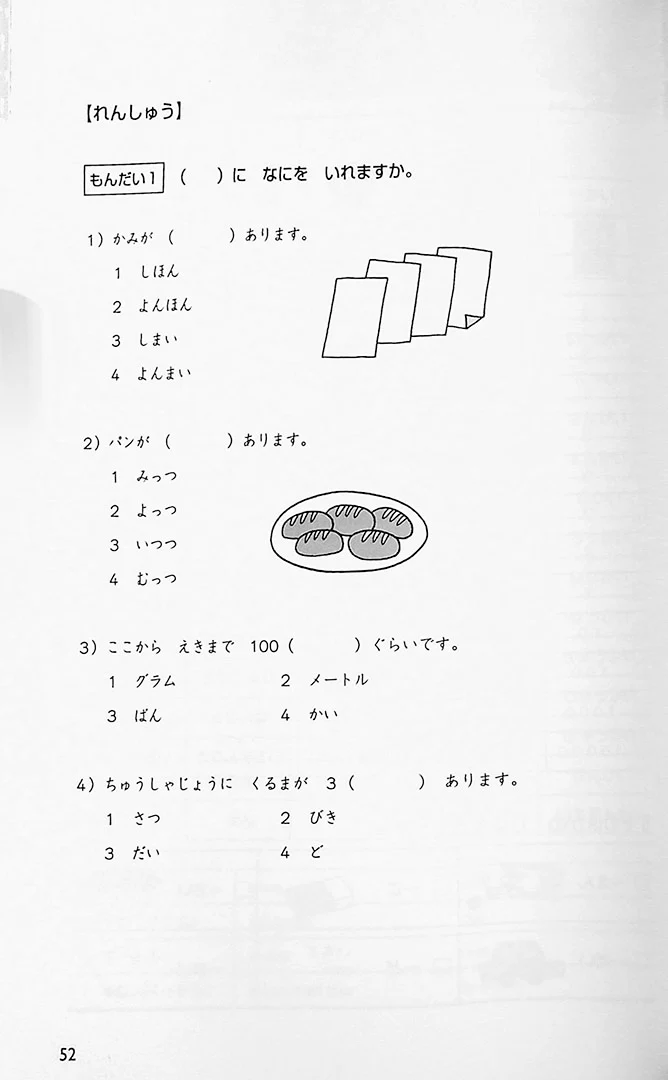 【れんしゅう】
もんだい1 (　　)に　なにを　いれますか。
1) かみが (　　　) あります。
1 しほん
2 よんほん
3 しまい
4 よんまい
2) パンが (　　　) あります。
1 みっつ
2 よっつ
3 いつつ
4 むっつ
3) ここから　えきまで　100 (　　　) ぐらいです。
1 グラム　2 メートル
3 ばん　4 かい
4) ちゅうしゃじょうに　くるまが　3 (　　　)　あります。
1 さつ　2 びき
3 だい　4 ど
52